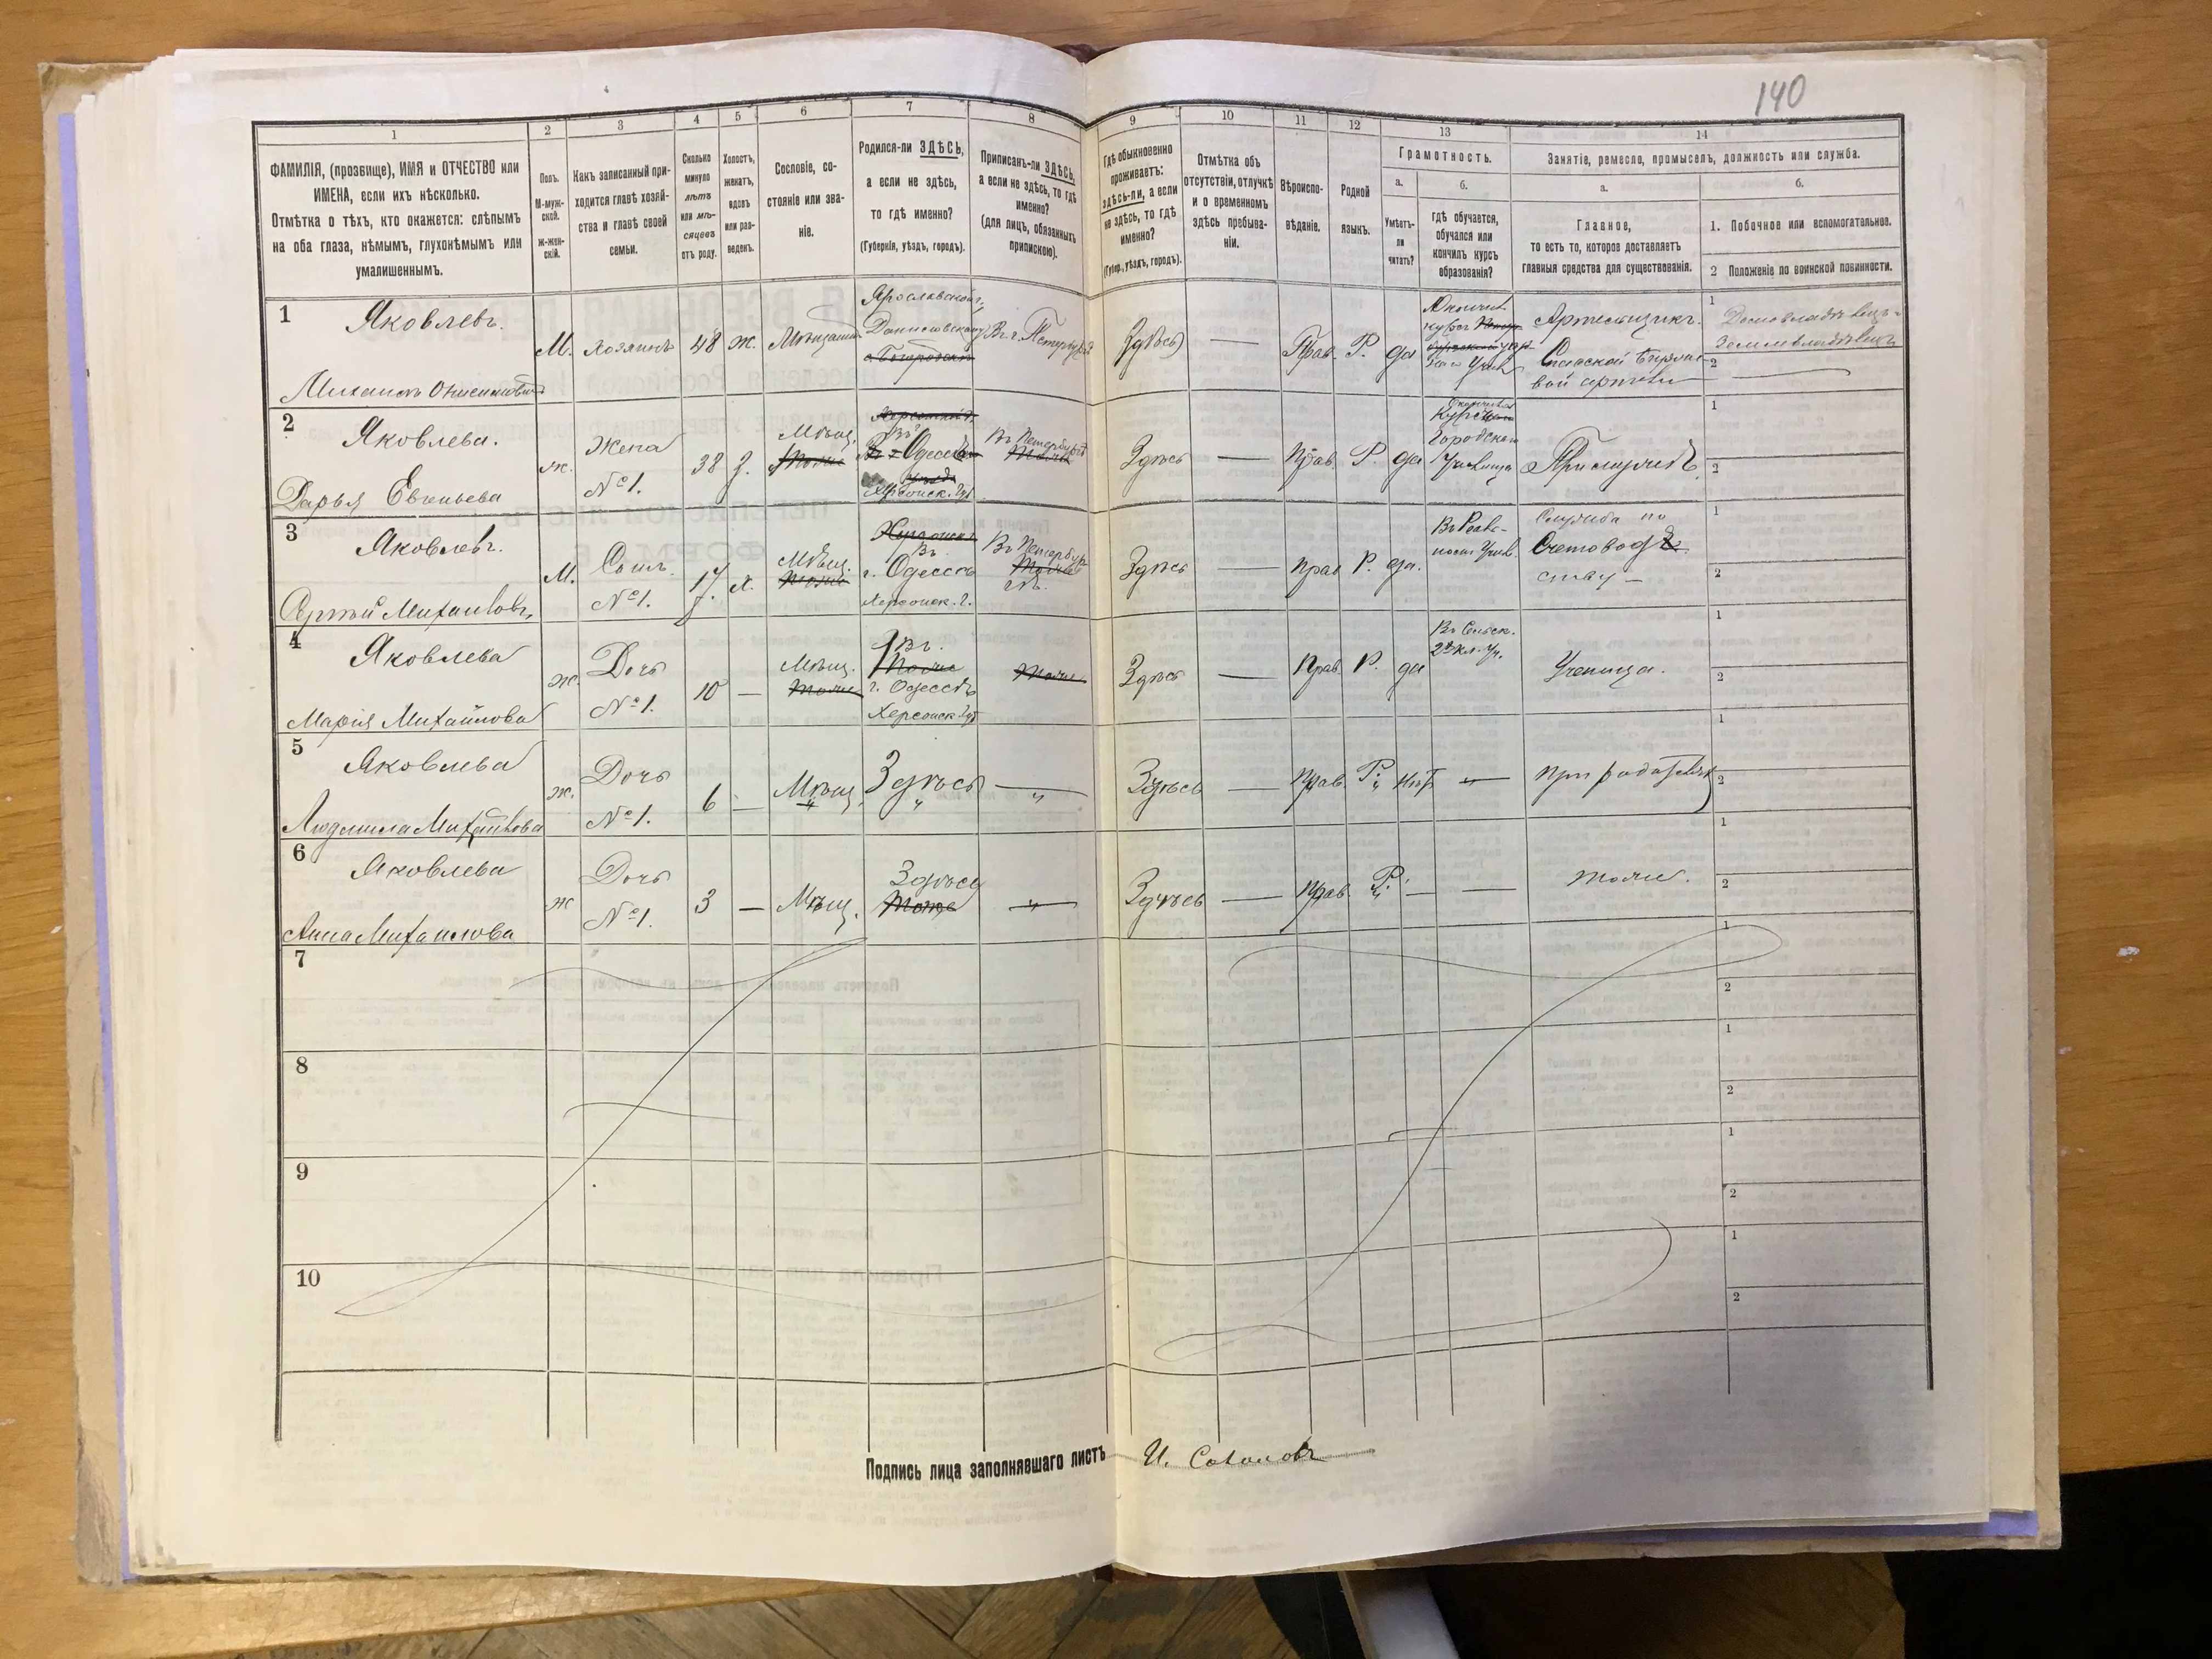 140
1 2 3 4 5 6 7 8 9 10 11 12 13 14
ФАМИЛІЯ, (прозвище), ИМЯ и ОТЧЕСТВО или
ИМЕНА, если ихъ нѣсколько.
Отмѣтка о тѣхъ, кто окажется: слѣпымъ
на оба глаза, нѣмымъ, глухонѣмымъ или
умалишеннымъ.
Полъ.
М-муж-
ской.
ж-жен-
скій.
Какъ записанный при-
ходится главѣ хозяй-
ства и главѣ своей
семьи.
Сколько
минуло
лѣтъ
или мѣ-
сяцевъ
отъ роду.
Холостъ,
женатъ,
вдовъ
или раз-
веденъ.
Сословіе, со-
стояніе или зва-
ніе.
Родился-ли ЗДѢСЬ,
а если не здѣсь,
то гдѣ именно?
(Губернія, уѣздъ, городъ).
Приписанъ-ли ЗДѢСЬ,
а если не здѣсь, то гдѣ
именно?
(для лицъ, обязанныхъ
припискою).
Гдѣ обыкновенно
проживаетъ:
здѣсь-ли, а если
не здѣсь, то гдѣ
именно?
(Губер., уѣздъ, городъ).
Отмѣтка объ
отсутствіи, отлучкѣ
и о временномъ
здѣсь пребыва-
ніи.
Вѣроиспо-
вѣданіе.
Родной
языкъ.
Грамотность.
а.
Умѣетъ-
ли
читать?
б.
гдѣ обучается,
обучался или
кончилъ курсъ
образованія?
Занятіе, ремесло, промыселъ, должность или служба.
а.
Главное,
то есть то, которое доставляетъ
главныя средства для существованія.
б.
1. Побочное или вспомогательное.
2 Положеніе по воинской повинности.
1
Яковлевъ.
Михаилъ
М.
Хозяинъ
48
ж.
Ярославской г.
Въ г. Петербургѣ
Здѣсь
—
Прав.
Р.
да
Артельщикъ.
Биржевой артели
1 Домовладѣлецъ
Землевладѣлецъ
2 —
2
Яковлева.
Дарья
ж.
Жена
№ 1.
38
з.
Мѣщ.
Въ
Одессѣ
Херсонск. губ
Въ Петербургѣ
Здѣсь
—
Прав.
Р.
да
Городском
Училище
При мужѣ
1
2
3
Яковлевъ.
Сергѣй Михайловъ
М.
Сынъ.
№ 1.
17
х.
Мѣщ.
Въ
г. Одессѣ
Херсонск. г.
Въ Петербур
гѣ.
Здѣсь
—
Прав
Р.
да.
Служба по
Счетовод
ству —
1
2
4
Яковлева
Марія Михайлова
ж.
Дочь
№ 1.
10
—
Мѣщ.
Въ
г. Одессѣ
Херсонск. губ
Здѣсь
—
Прав
Р.
да
Ученица.
1
2
5
Яковлева
Людмила Михайлова
ж.
Дочь
№ 1.
6
—
Мѣщ.
Здѣсь
—
Здѣсь
—
Прав.
Р.
нѣт
—
При родителях
1
2
6
Яковлева
Анна Михайлова
ж
Дочь
№ 1.
3
—
Мѣщ.
Здѣсь
—
Здѣсь
—
Прав.
Р.
—
—
тоже.
1
2
7
1
2
8
1
2
9
1
2
10
1
2
Подпись лица заполнявшаго листъ